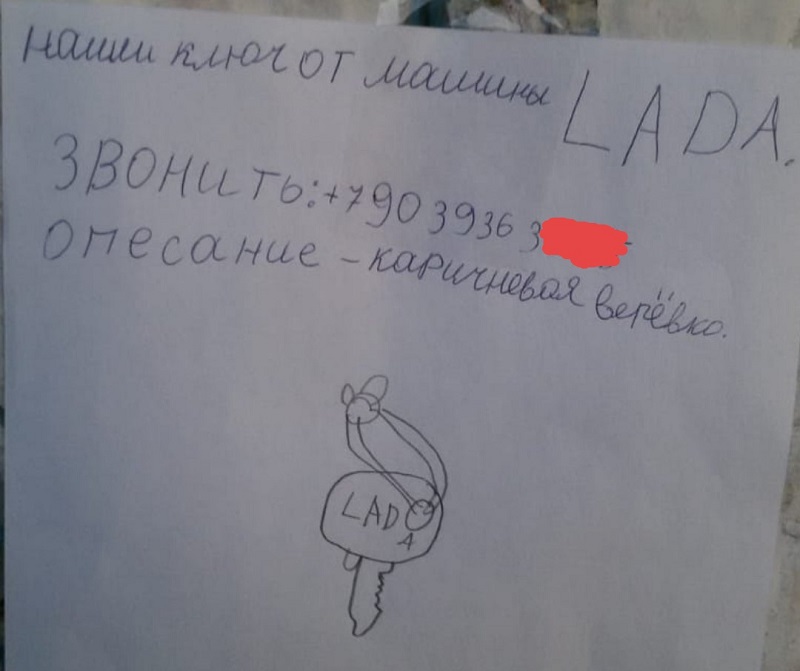 наши ключ от машины LADA.
ЗВОНИТЬ: +7903 9363
опесание - каричневая верёвка.
LAD
А